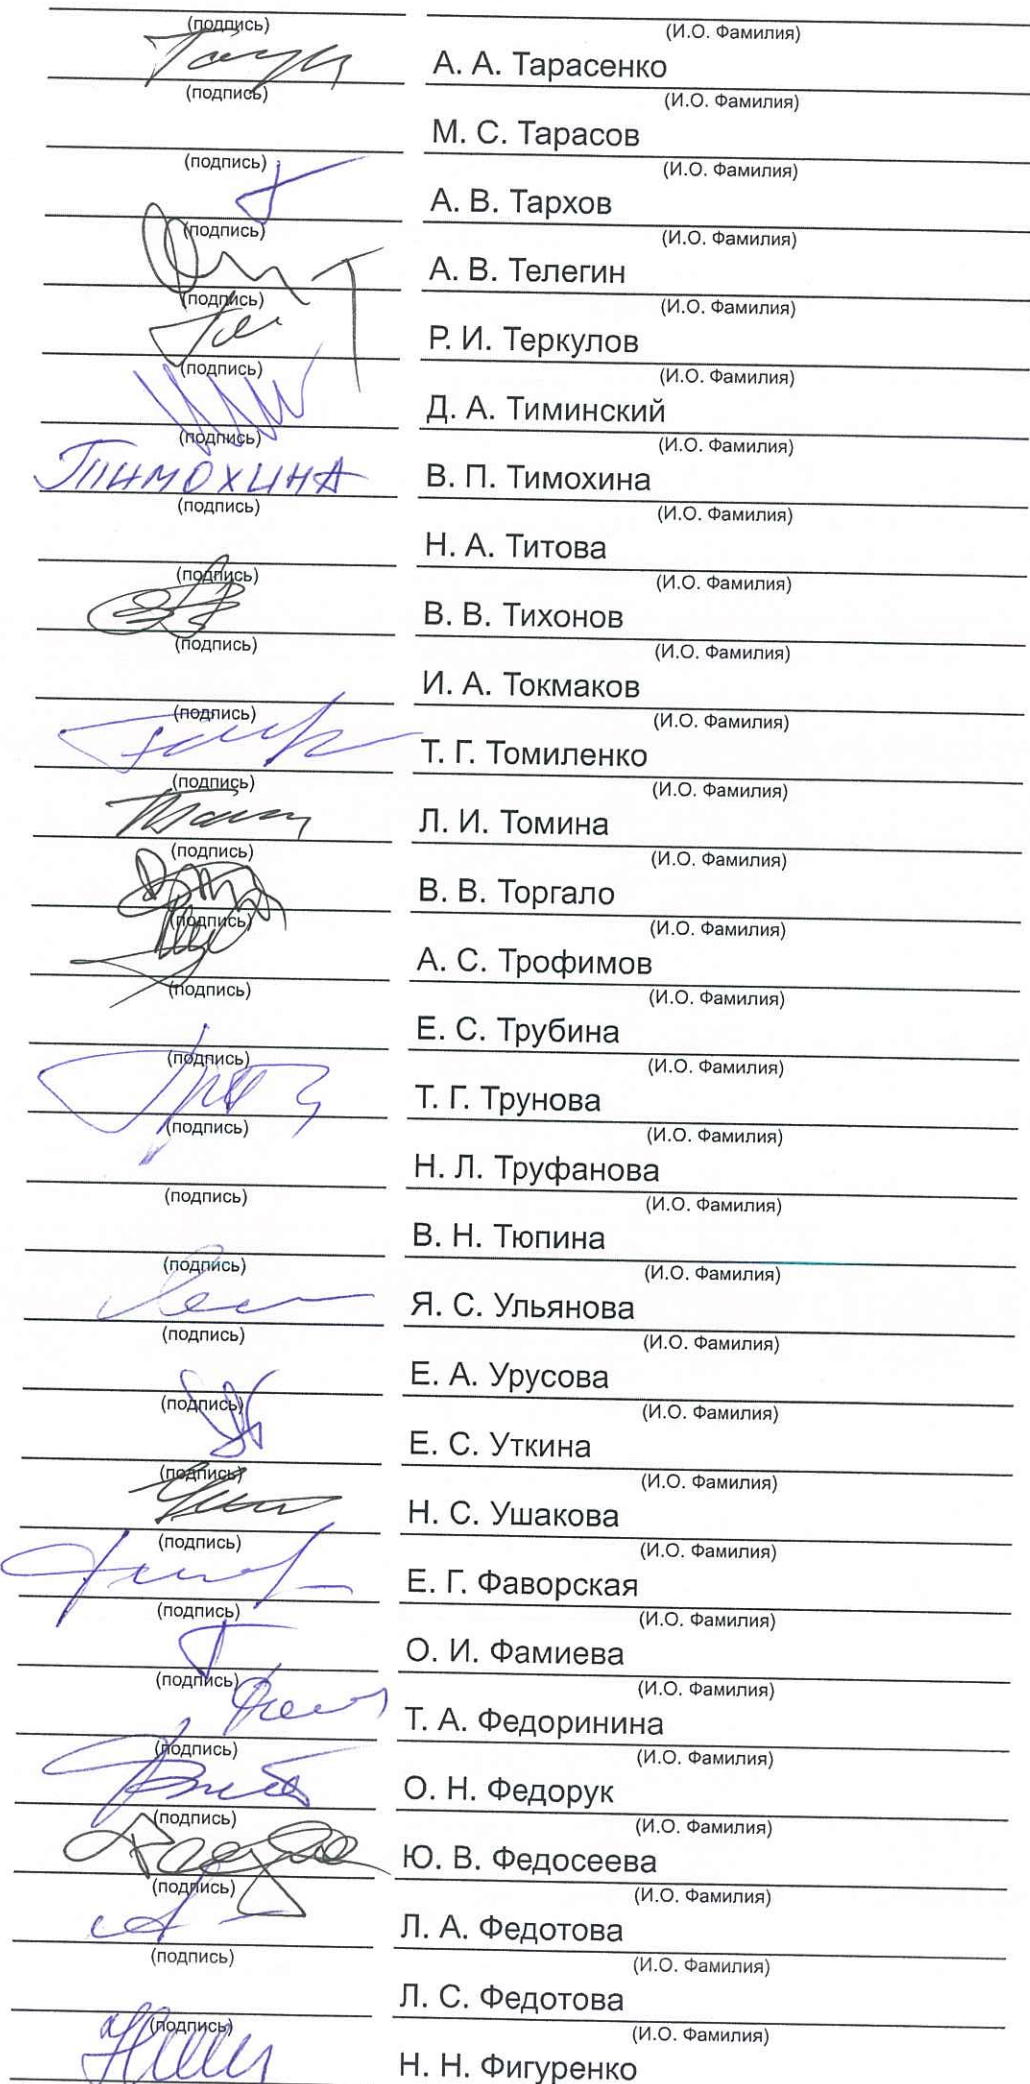 (подпись) (И.О. Фамилия)
А. А. Тарасенко
(подпись) (И.О. Фамилия)
М. С. Тарасов
(подпись) (И.О. Фамилия)
А. В. Тархов
(подпись) (И.О. Фамилия)
А. В. Телегин
(подпись) (И.О. Фамилия)
Р. И. Теркулов
(подпись) (И.О. Фамилия)
Д. А. Тиминский
(подпись) (И.О. Фамилия)
Тимохина В. П. Тимохина
(подпись) (И.О. Фамилия)
Н. А. Титова
(подпись) (И.О. Фамилия)
В. В. Тихонов
(подпись) (И.О. Фамилия)
И. А. Токмаков
(подпись) (И.О. Фамилия)
Т. Г. Томиленко
(подпись) (И.О. Фамилия)
Л. И. Томина
(подпись) (И.О. Фамилия)
В. В. Торгало
(подпись) (И.О. Фамилия)
А. С. Трофимов
(подпись) (И.О. Фамилия)
Е. С. Трубина
(подпись) (И.О. Фамилия)
Т. Г. Трунова
(подпись) (И.О. Фамилия)
Н. Л. Труфанова
(подпись) (И.О. Фамилия)
В. Н. Тюпина
(подпись) (И.О. Фамилия)
Я. С. Ульянова
(подпись) (И.О. Фамилия)
Е. А. Урусова
(подпись) (И.О. Фамилия)
Е. С. Уткина
(подпись) (И.О. Фамилия)
Н. С. Ушакова
(подпись) (И.О. Фамилия)
Е. Г. Фаворская
(подпись) (И.О. Фамилия)
О. И. Фамиева
(подпись) (И.О. Фамилия)
Т. А. Федоринина
(подпись) (И.О. Фамилия)
О. Н. Федорук
(подпись) (И.О. Фамилия)
Ю. В. Федосеева
(подпись) (И.О. Фамилия)
Л. А. Федотова
(подпись) (И.О. Фамилия)
Л. С. Федотова
(подпись) (И.О. Фамилия)
Н. Н. Фигуренко